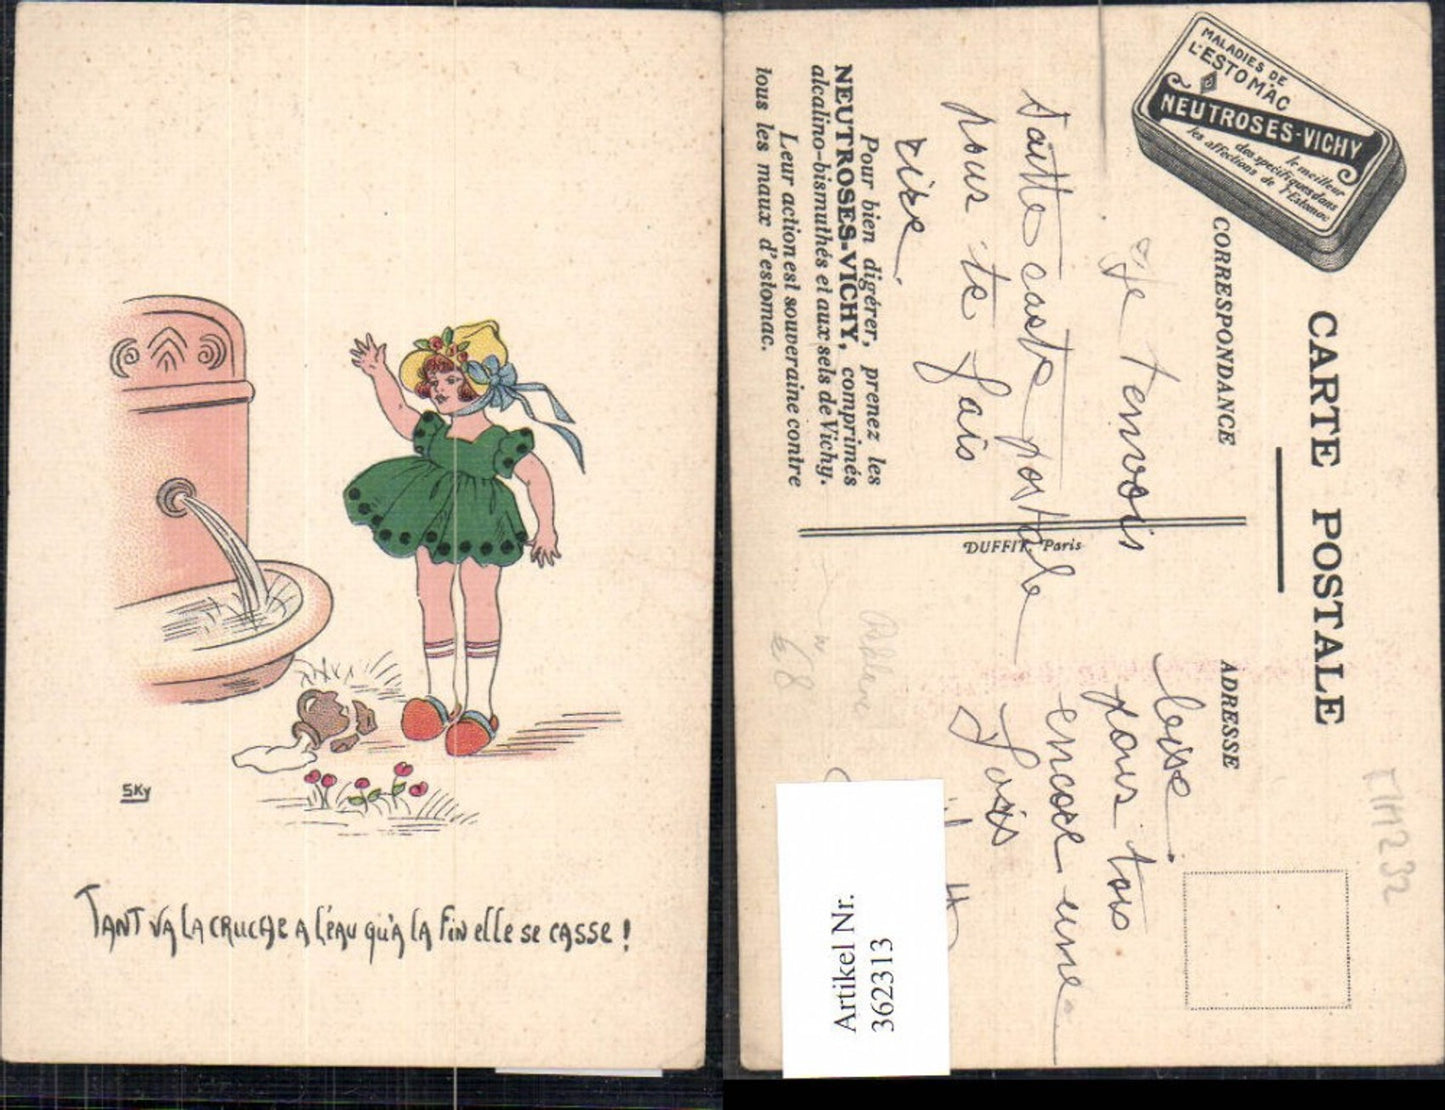 SKy
TANT VA LA CRUCHE A L'EAU QU'A LA FIN ELLE SE CASSE !
MALADIES DE
L'ESTOMAC
NEUTROSES-VICHY
le meilleur
des spécifiques dans
les affections de l'Estomac
CARTE POSTALE
CORRESPONDANCE
ADRESSE
Je t'envois
cette carte postale
pour te fais
rire.
pour tois
encore une
fois
Pour bien digérer, prenez les
NEUTROSES-VICHY, comprimés
alcalino-bismuthés et aux sels de Vichy.
Leur action est souveraine contre
tous les maux d'estomac.
DUFFIT, Paris
68
MH232
Artikel Nr.
362313